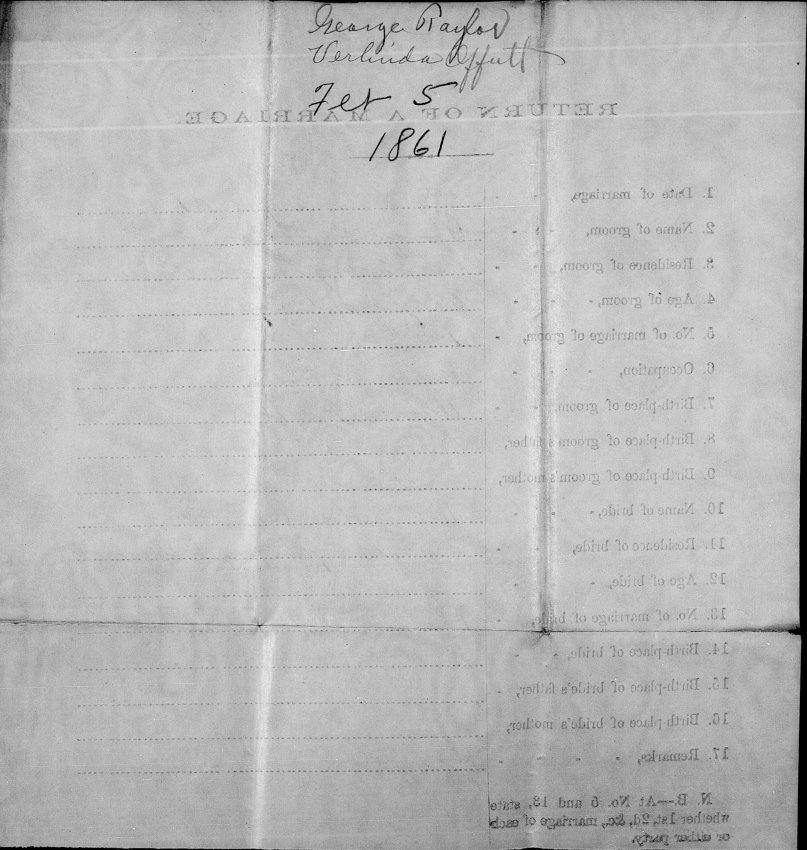 George Taylor
Verlinda Offutt
Feb 5
RETURN OF A MARRIAGE.
1861
1. Date of marriage, - -
2. Name of groom, - -
3. Residence of groom, -
4. Age of groom, - -
5. No. of marriage of groom, -
6. Occupation, - - -
7. Birth-place of groom, - -
8. Birth-place of groom's father,
9. Birth-place of groom's mother,
10. Name of bride, - -
11. Residence of bride, - -
12. Age of bride, - -
13. No. of marriage of bride, -
14. Birth-place of bride, - -
15. Birth-place of bride's father, -
16. Birth-place of bride's mother,
17. Remarks, - - - -
N. B.—At No. 5 and 13, state
whether 1st, 2d, &c., marriage of each
or either party.